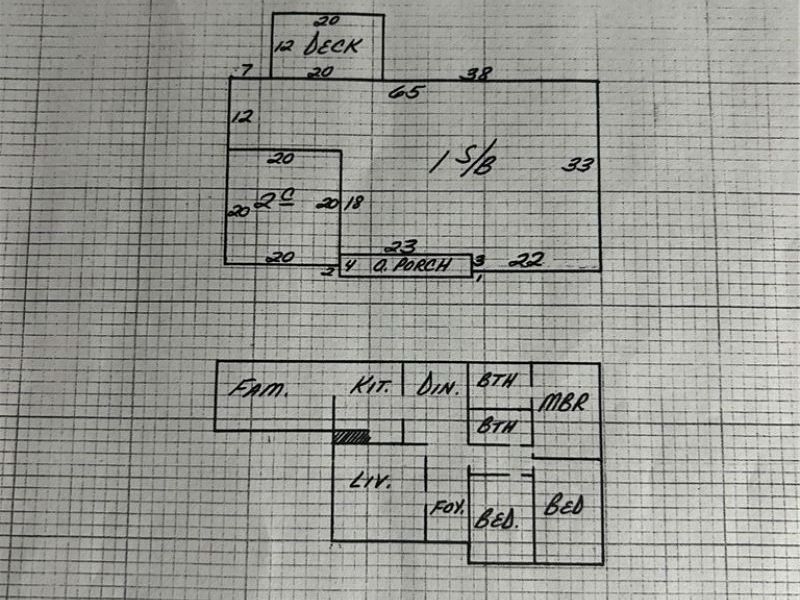 20
12 DECK
7 20 38
65
12
1 S/B 33
20
20 2 C 20 18
23
20 2 4 O. PORCH 3 22
1
FAM. KIT. DIN. BTH MBR
BTH
LIV.
FOY. BED. BED